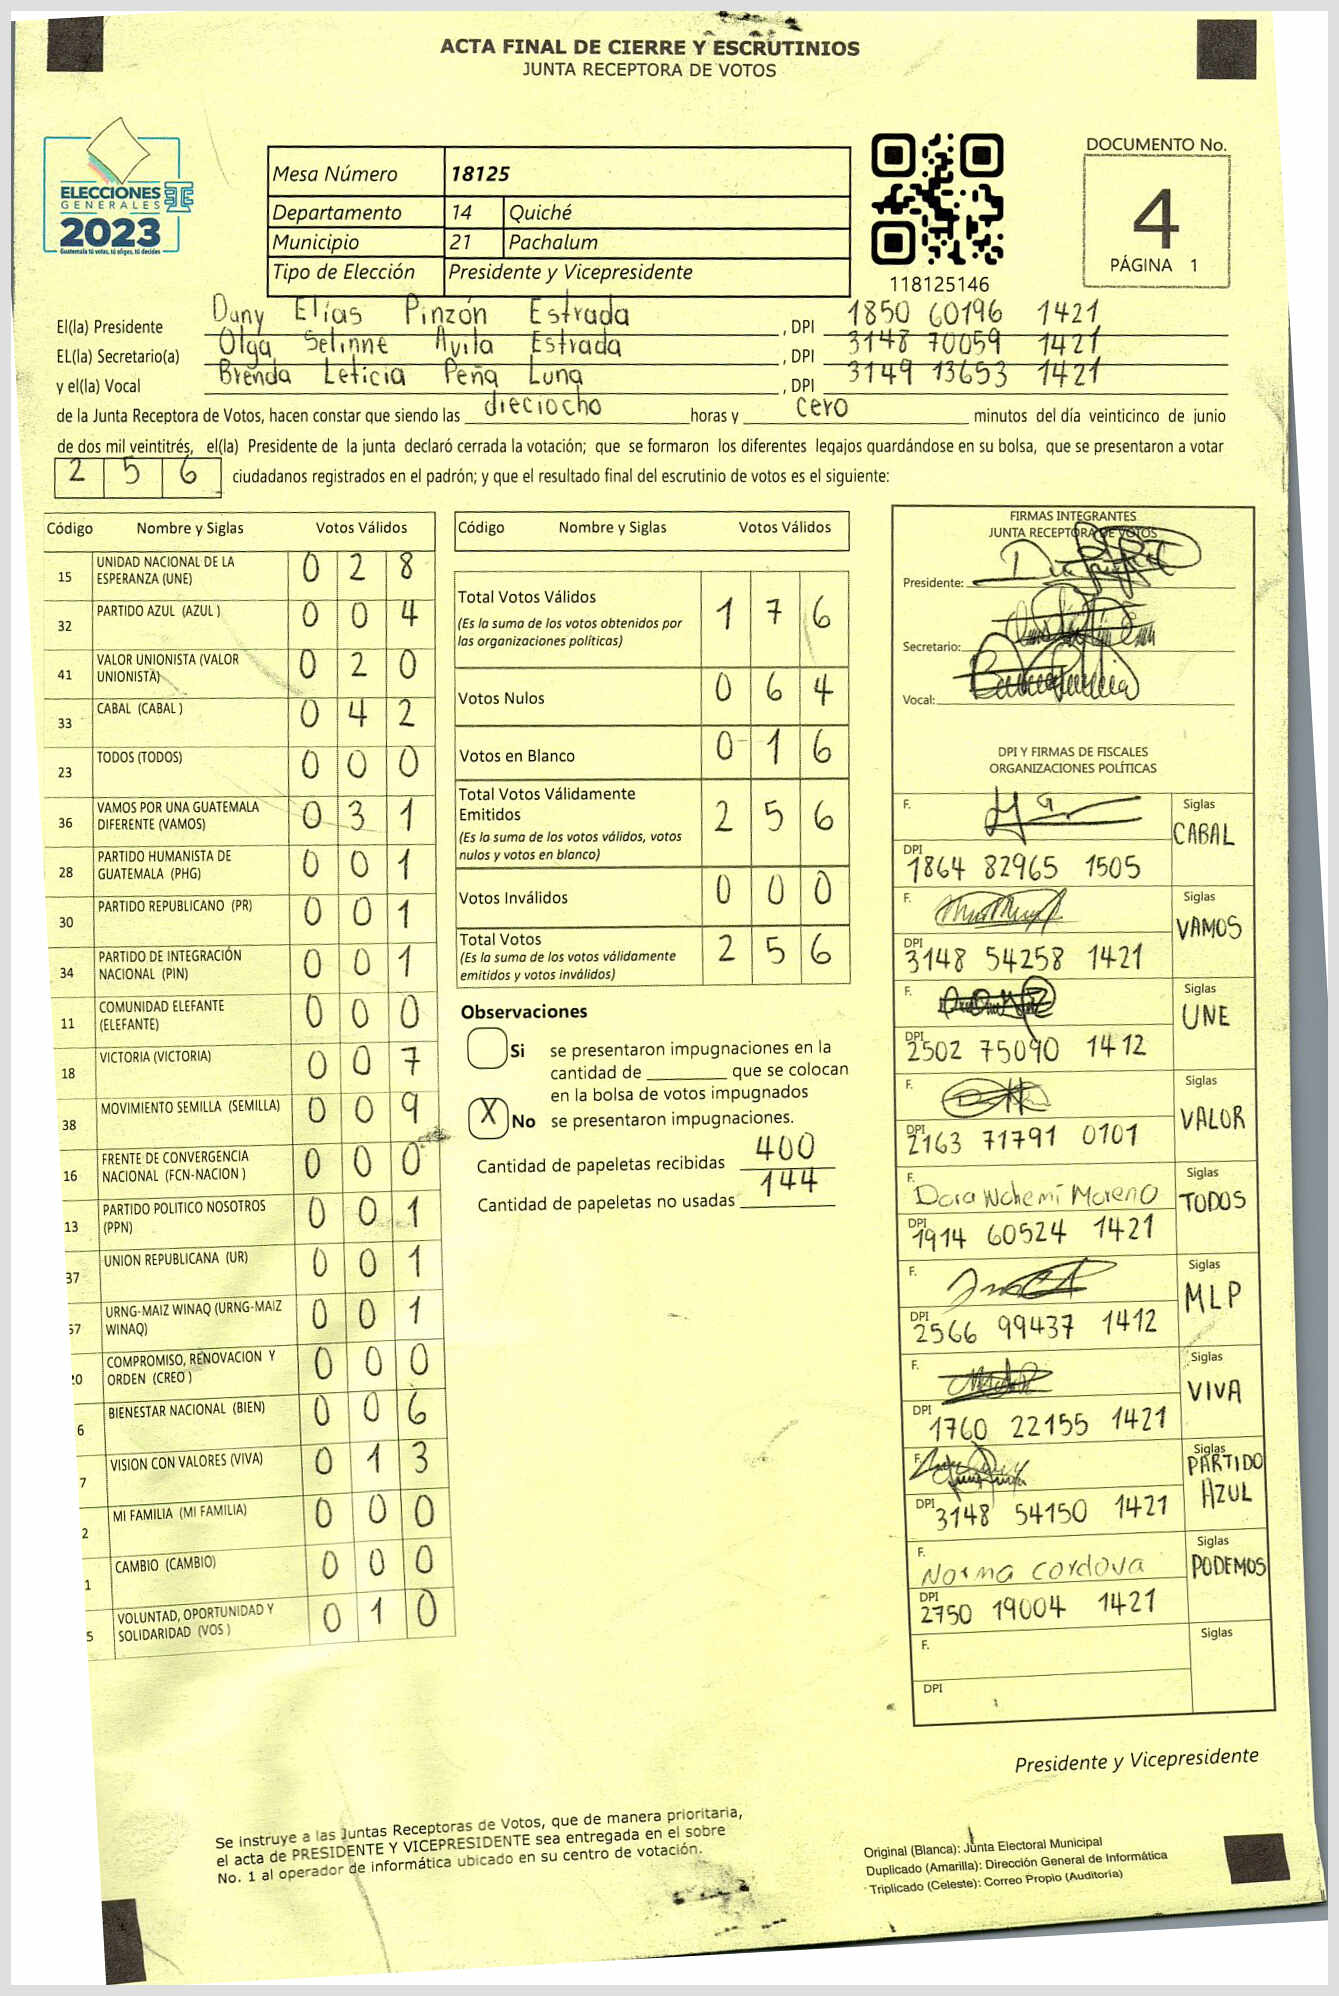 ACTA FINAL DE CIERRE Y ESCRUTINIOS
JUNTA RECEPTORA DE VOTOS
ELECCIONES
GENERALES
2023
Guatemala tú votas, tú eliges, tú decides
Mesa Número 18125
Departamento 14 Quiché
Municipio 21 Pachalum
Tipo de Elección Presidente y Vicepresidente
118125146
DOCUMENTO No.
4
PÁGINA 1
El(la) Presidente Dany Elías Pinzón Estrada , DPI 1850 60196 1421
EL(la) Secretario(a) Olga Selinne Avila Estrada , DPI 3148 70059 1421
y el(la) Vocal Brenda Leticia Peña Luna , DPI 3149 13653 1421
de la Junta Receptora de Votos, hacen constar que siendo las dieciocho horas y cero minutos del día veinticinco de junio
de dos mil veintitrés, el(la) Presidente de la junta declaró cerrada la votación; que se formaron los diferentes legajos guardándose en su bolsa, que se presentaron a votar
256 ciudadanos registrados en el padrón; y que el resultado final del escrutinio de votos es el siguiente:
Código Nombre y Siglas Votos Válidos
15 UNIDAD NACIONAL DE LA ESPERANZA (UNE) 0 2 8
32 PARTIDO AZUL (AZUL ) 0 0 4
41 VALOR UNIONISTA (VALOR UNIONISTA) 0 2 0
33 CABAL (CABAL ) 0 4 2
23 TODOS (TODOS) 0 0 0
36 VAMOS POR UNA GUATEMALA DIFERENTE (VAMOS) 0 3 1
28 PARTIDO HUMANISTA DE GUATEMALA (PHG) 0 0 1
30 PARTIDO REPUBLICANO (PR) 0 0 1
34 PARTIDO DE INTEGRACIÓN NACIONAL (PIN) 0 0 1
11 COMUNIDAD ELEFANTE (ELEFANTE) 0 0 0
18 VICTORIA (VICTORIA) 0 0 7
38 MOVIMIENTO SEMILLA (SEMILLA) 0 0 9
16 FRENTE DE CONVERGENCIA NACIONAL (FCN-NACION ) 0 0 0
13 PARTIDO POLITICO NOSOTROS (PPN) 0 0 1
37 UNION REPUBLICANA (UR) 0 0 1
57 URNG-MAIZ WINAQ (URNG-MAIZ WINAQ) 0 0 1
20 COMPROMISO, RENOVACION Y ORDEN (CREO ) 0 0 0
6 BIENESTAR NACIONAL (BIEN) 0 0 6
7 VISION CON VALORES (VIVA) 0 1 3
2 MI FAMILIA (MI FAMILIA) 0 0 0
1 CAMBIO (CAMBIO) 0 0 0
5 VOLUNTAD, OPORTUNIDAD Y SOLIDARIDAD (VOS ) 0 1 0
Código Nombre y Siglas Votos Válidos
Total Votos Válidos 1 7 6
(Es la suma de los votos obtenidos por
las organizaciones políticas)
Votos Nulos 0 6 4
Votos en Blanco 0 1 6
Total Votos Válidamente
Emitidos 2 5 6
(Es la suma de los votos válidos, votos
nulos y votos en blanco)
Votos Inválidos 0 0 0
Total Votos 2 5 6
(Es la suma de los votos válidamente
emitidos y votos inválidos)
Observaciones
Si se presentaron impugnaciones en la
cantidad de ________ que se colocan
en la bolsa de votos impugnados
X No se presentaron impugnaciones.
Cantidad de papeletas recibidas 400
Cantidad de papeletas no usadas 144
FIRMAS INTEGRANTES
JUNTA RECEPTORA DE VOTOS
Presidente:
Secretario:
Vocal:
DPI Y FIRMAS DE FISCALES
ORGANIZACIONES POLÍTICAS
F. Siglas CABAL
DPI 1864 82965 1505
F. Siglas VAMOS
DPI 3148 54258 1421
F. Siglas UNE
DPI 2502 75090 1412
F. Siglas VALOR
DPI 2163 71791 0101
F. Dora Nohemí Moreno Siglas TODOS
DPI 1914 60524 1421
F. Siglas MLP
DPI 2566 99437 1412
F. Siglas VIVA
DPI 1760 22155 1421
F. Siglas PARTIDO AZUL
DPI 3148 54150 1421
F. Norma Cordova Siglas PODEMOS
DPI 2750 19004 1421
F. Siglas
DPI
Presidente y Vicepresidente
Se instruye a las Juntas Receptoras de Votos, que de manera prioritaria,
el acta de PRESIDENTE Y VICEPRESIDENTE sea entregada en el sobre
No. 1 al operador de informática ubicado en su centro de votación.
Original (Blanca): Junta Electoral Municipal
Duplicado (Amarilla): Dirección General de Informática
Triplicado (Celeste): Correo Propio (Auditoría)